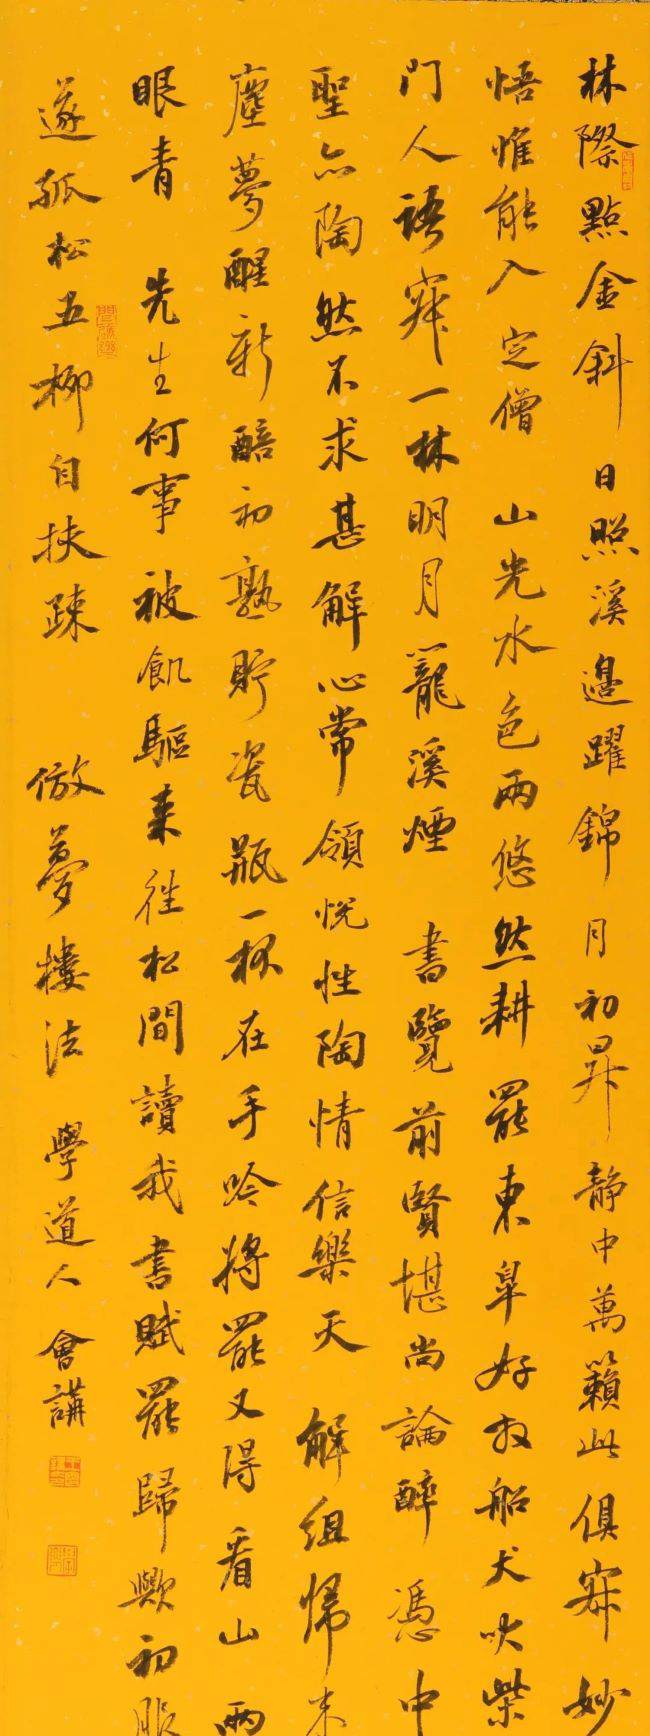 林際點金斜日照溪邊躍錦月初昇靜中萬籟此俱寂妙
悟惟能入定僧山光水色兩悠然耕罷東皋好放船犬吠柴
門人語寂一林明月籠溪煙書覽前賢堪尚論醉憑中
聖亦陶然不求甚解心常領悅性陶情信樂天解組歸来
塵夢醒新醅初熟貯瓷瓶一杯在手吟將罷又得看山兩
眼青先生何事被飢驅来往松間讀我書賦罷歸歟初服
遂孤松五柳自扶疎
倣夢樓法學道人會講